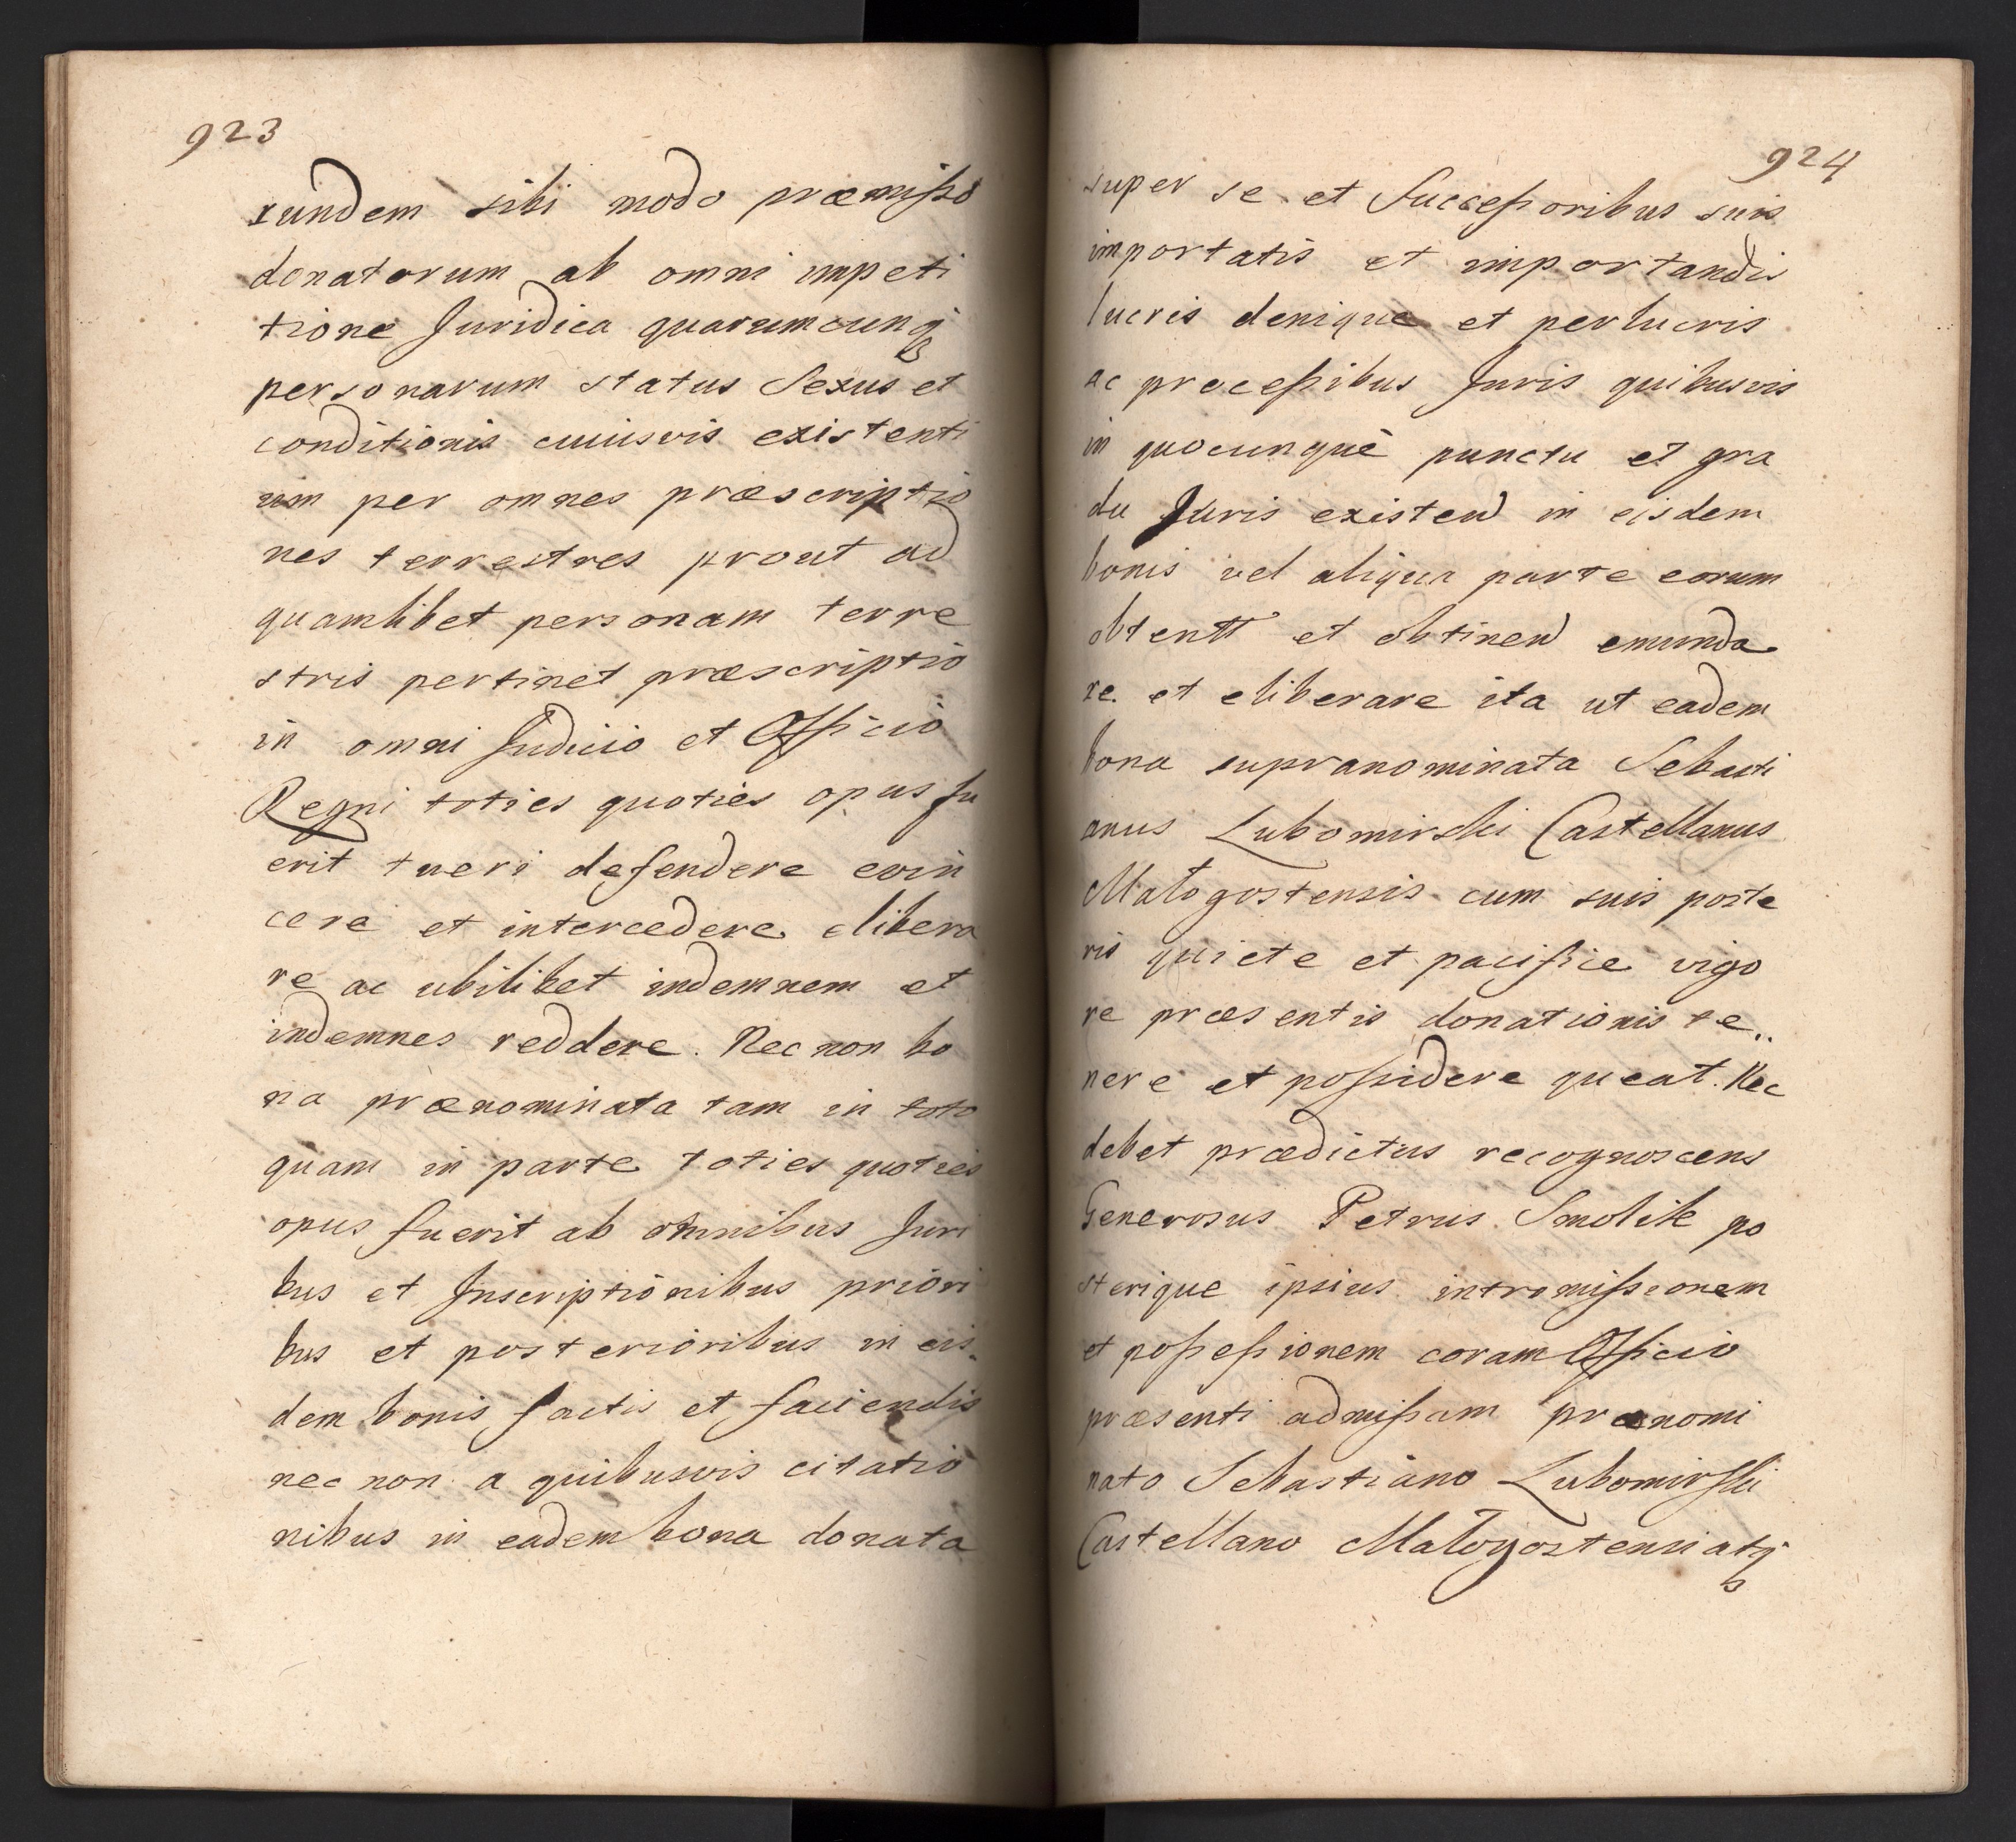 923
rundem sibi modo præmisso
donatorum ab omni impeti
tione Juridica quarumcunq
personarum status Sexus et
conditionis cuiusvis existenti
um per omnes præscriptio
nes terrestres prout ad
quamlibet personam terre
stris pertinet præscriptio
in omni Judicio et Officio
Regni toties quoties opus fu
erit tueri defendere evin
cere et intercedere elibera
re ac ubilibet indemnem et
indemnes reddere. Nec non bo
na prænominata tam in toto
quam in parte toties quoties
opus fuerit ab omnibus Juri
bus et Inscriptionibus priori
bus et posterioribus in eis
dem bonis factis et faciendis
nec non a quibusvis citatio
nibus in eadem bona donata
924
super se et Successoribus suis
importatis et importandis
lucris denique et perlucris
ac processibus Juris quibusvis
in quocunque punctu et gra
du Juris existend in eisdem
bonis vel aliqua parte eorum
obtentt et obtinend emunda
re et eliberare ita ut eadem
bona supranominata Sebasti
anus Lubomirski Castellanus
Małogostensis cum suis poste
ris quiete et pacifice vigo
re præsentis donationis te..
nere et possidere queat. Nec
debet prædictus recognoscens
Generosus Petrus Smolik po
sterique ipsius intromissionem
et possessionem coram Officio
præsenti admissam prænomi
nato Sebastiano Lubomirski
Castellano Małogostensi atq